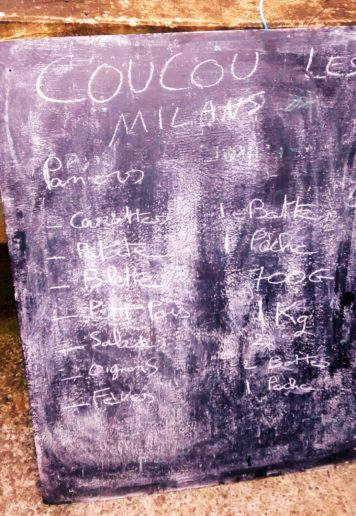 COUCOU LES
MILANS
Paniers
- Carottes 1 Botte
- Patate 1 Poche
- Blette 700G
- Petit Pois 1 Kg
- Salade 2
- Oignons 2 Bottes
- Feves 1 Poche